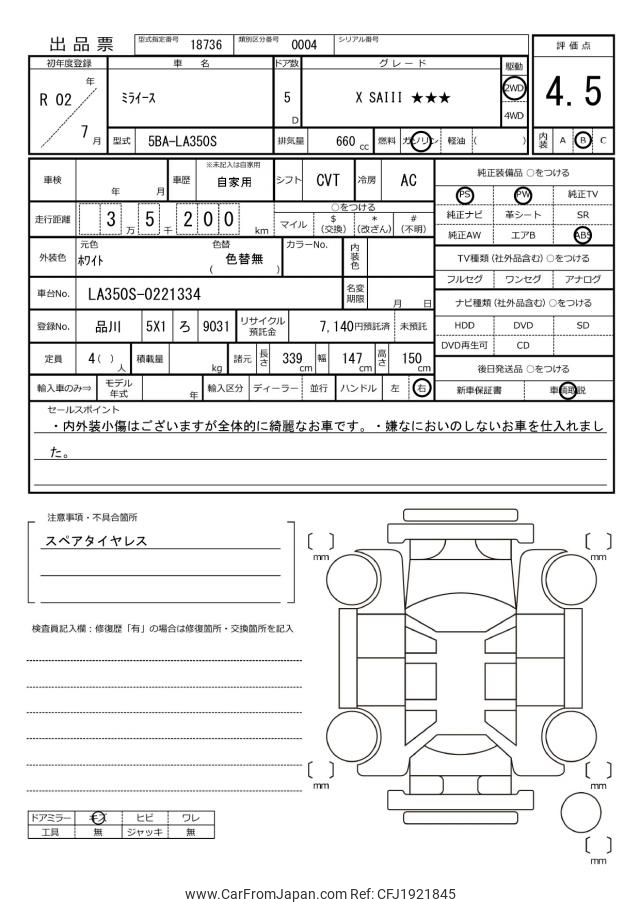 出品票 型式指定番号 18736 類別区分番号 0004 シリアル番号
評価点
4.5
内装 A B C
初年度登録 車名 ドア数 グレード 駆動
R 02 年 7 月 ﾐﾗｲｰｽ 5 D X SAIII ★★★ 2WD 4WD
型式 5BA-LA350S 排気量 660 cc 燃料 ガソリン 軽油 ( )
車検 年 月 車歴 ※未記入は自家用 自家用 シフト CVT 冷房 AC
走行距離 3 万 5 千 2 0 0 km ○をつける
マイル $ (交換) * (改ざん) # (不明)
外装色 元色 ﾎﾜｲﾄ 色替 ( 色替無 ) カラーNo. 内装色
車台No. LA350S-0221334 名変期限 月 日
登録No. 品川 5X1 ろ 9031 リサイクル預託金 7,140円預託済 未預託
定員 4 ( ) 人 積載量 kg 諸元 長さ 339 cm 幅 147 cm 高さ 150 cm
輸入車のみ⇒ モデル年式 年 輸入区分 ディーラー 並行 ハンドル 左 右
純正装備品 ○をつける
PS PW 純正TV
純正ナビ 革シート SR
純正AW エアB ABS
TV種類 (社外品含む) ○をつける
フルセグ ワンセグ アナログ
ナビ種類 (社外品含む) ○をつける
HDD DVD SD
DVD再生可 CD
後日発送品 ○をつける
新車保証書 車輌取説
セールスポイント
・内外装小傷はございますが全体的に綺麗なお車です。・嫌なにおいのしないお車を仕入れまし
た。
注意事項・不具合箇所
スペアタイヤレス
検査員記入欄：修復歴「有」の場合は修復箇所・交換箇所を記入
ドアミラー キズ ヒビ ワレ
工具 無 ジャッキ 無
mm
mm
mm
mm
mm
www.CarFromJapan.com Ref: CFJ1921845